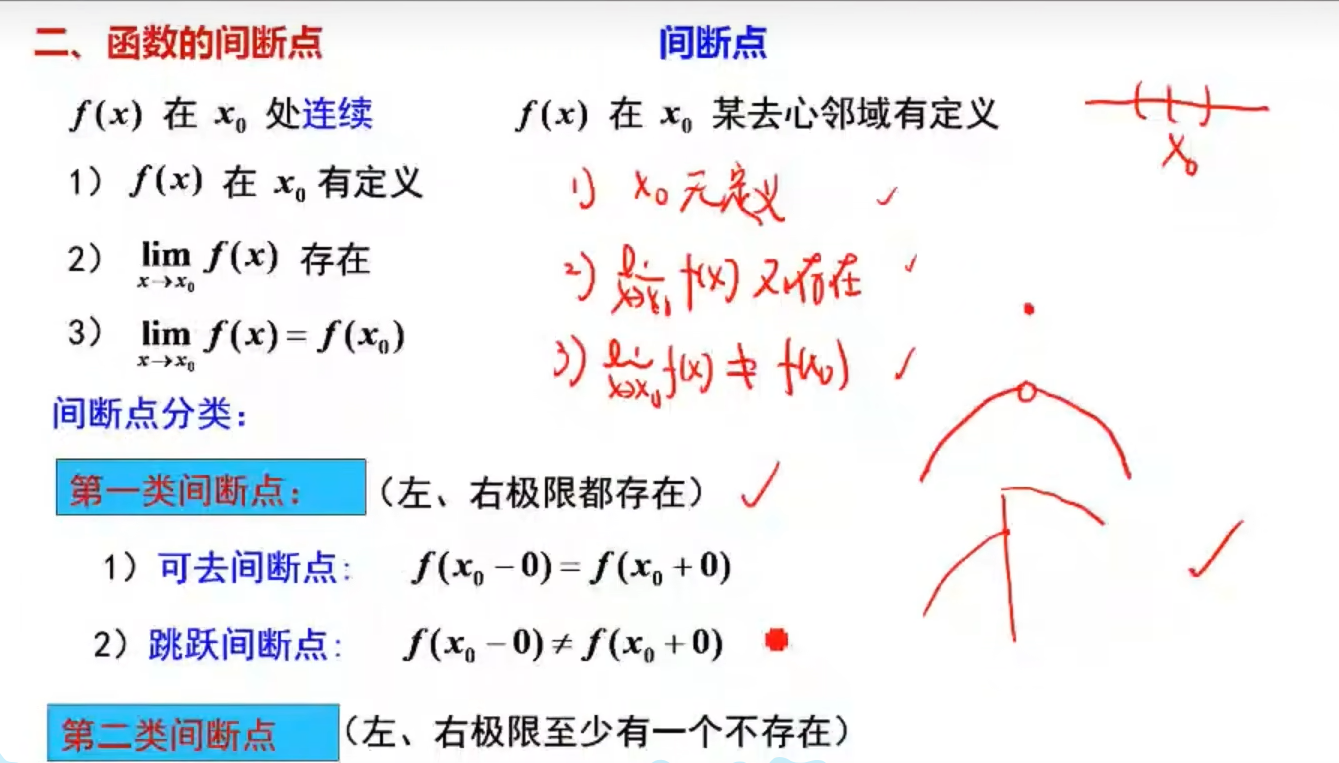 二、函数的间断点 间断点
f(x) 在 x₀ 处连续 f(x) 在 x₀ 某去心邻域有定义
x₀
1) f(x) 在 x₀ 有定义 1) x₀ 无定义 ✓
2) lim x→x₀ f(x) 存在 2) lim x→x₀ f(x) 不存在 ✓
3) lim x→x₀ f(x) = f(x₀) 3) lim x→x₀ f(x) ≠ f(x₀) ✓
间断点分类：
第一类间断点： （左、右极限都存在） ✓
1) 可去间断点： f(x₀ − 0) = f(x₀ + 0)
2) 跳跃间断点： f(x₀ − 0) ≠ f(x₀ + 0)
第二类间断点 （左、右极限至少有一个不存在）